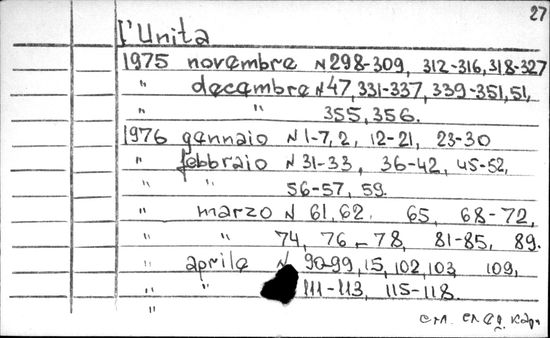 27
l'Unita
1975 novembre N298-309, 312-316, 318-327
" decembre N47, 331-337, 339-351, 51,
" " 355, 356.
1976 gennaio N1-7, 2, 12-21, 23-30
" febbraio N31-33, 36-42, 45-52,
" " 56-57, 59.
" marzo N 61, 62. 65, 68-72,
" " 74, 76-78, 81-85, 89.
" aprile N 90-99, 15, 102, 103, 109,
" " 111-113, 115-118.
"
см. след. карт.